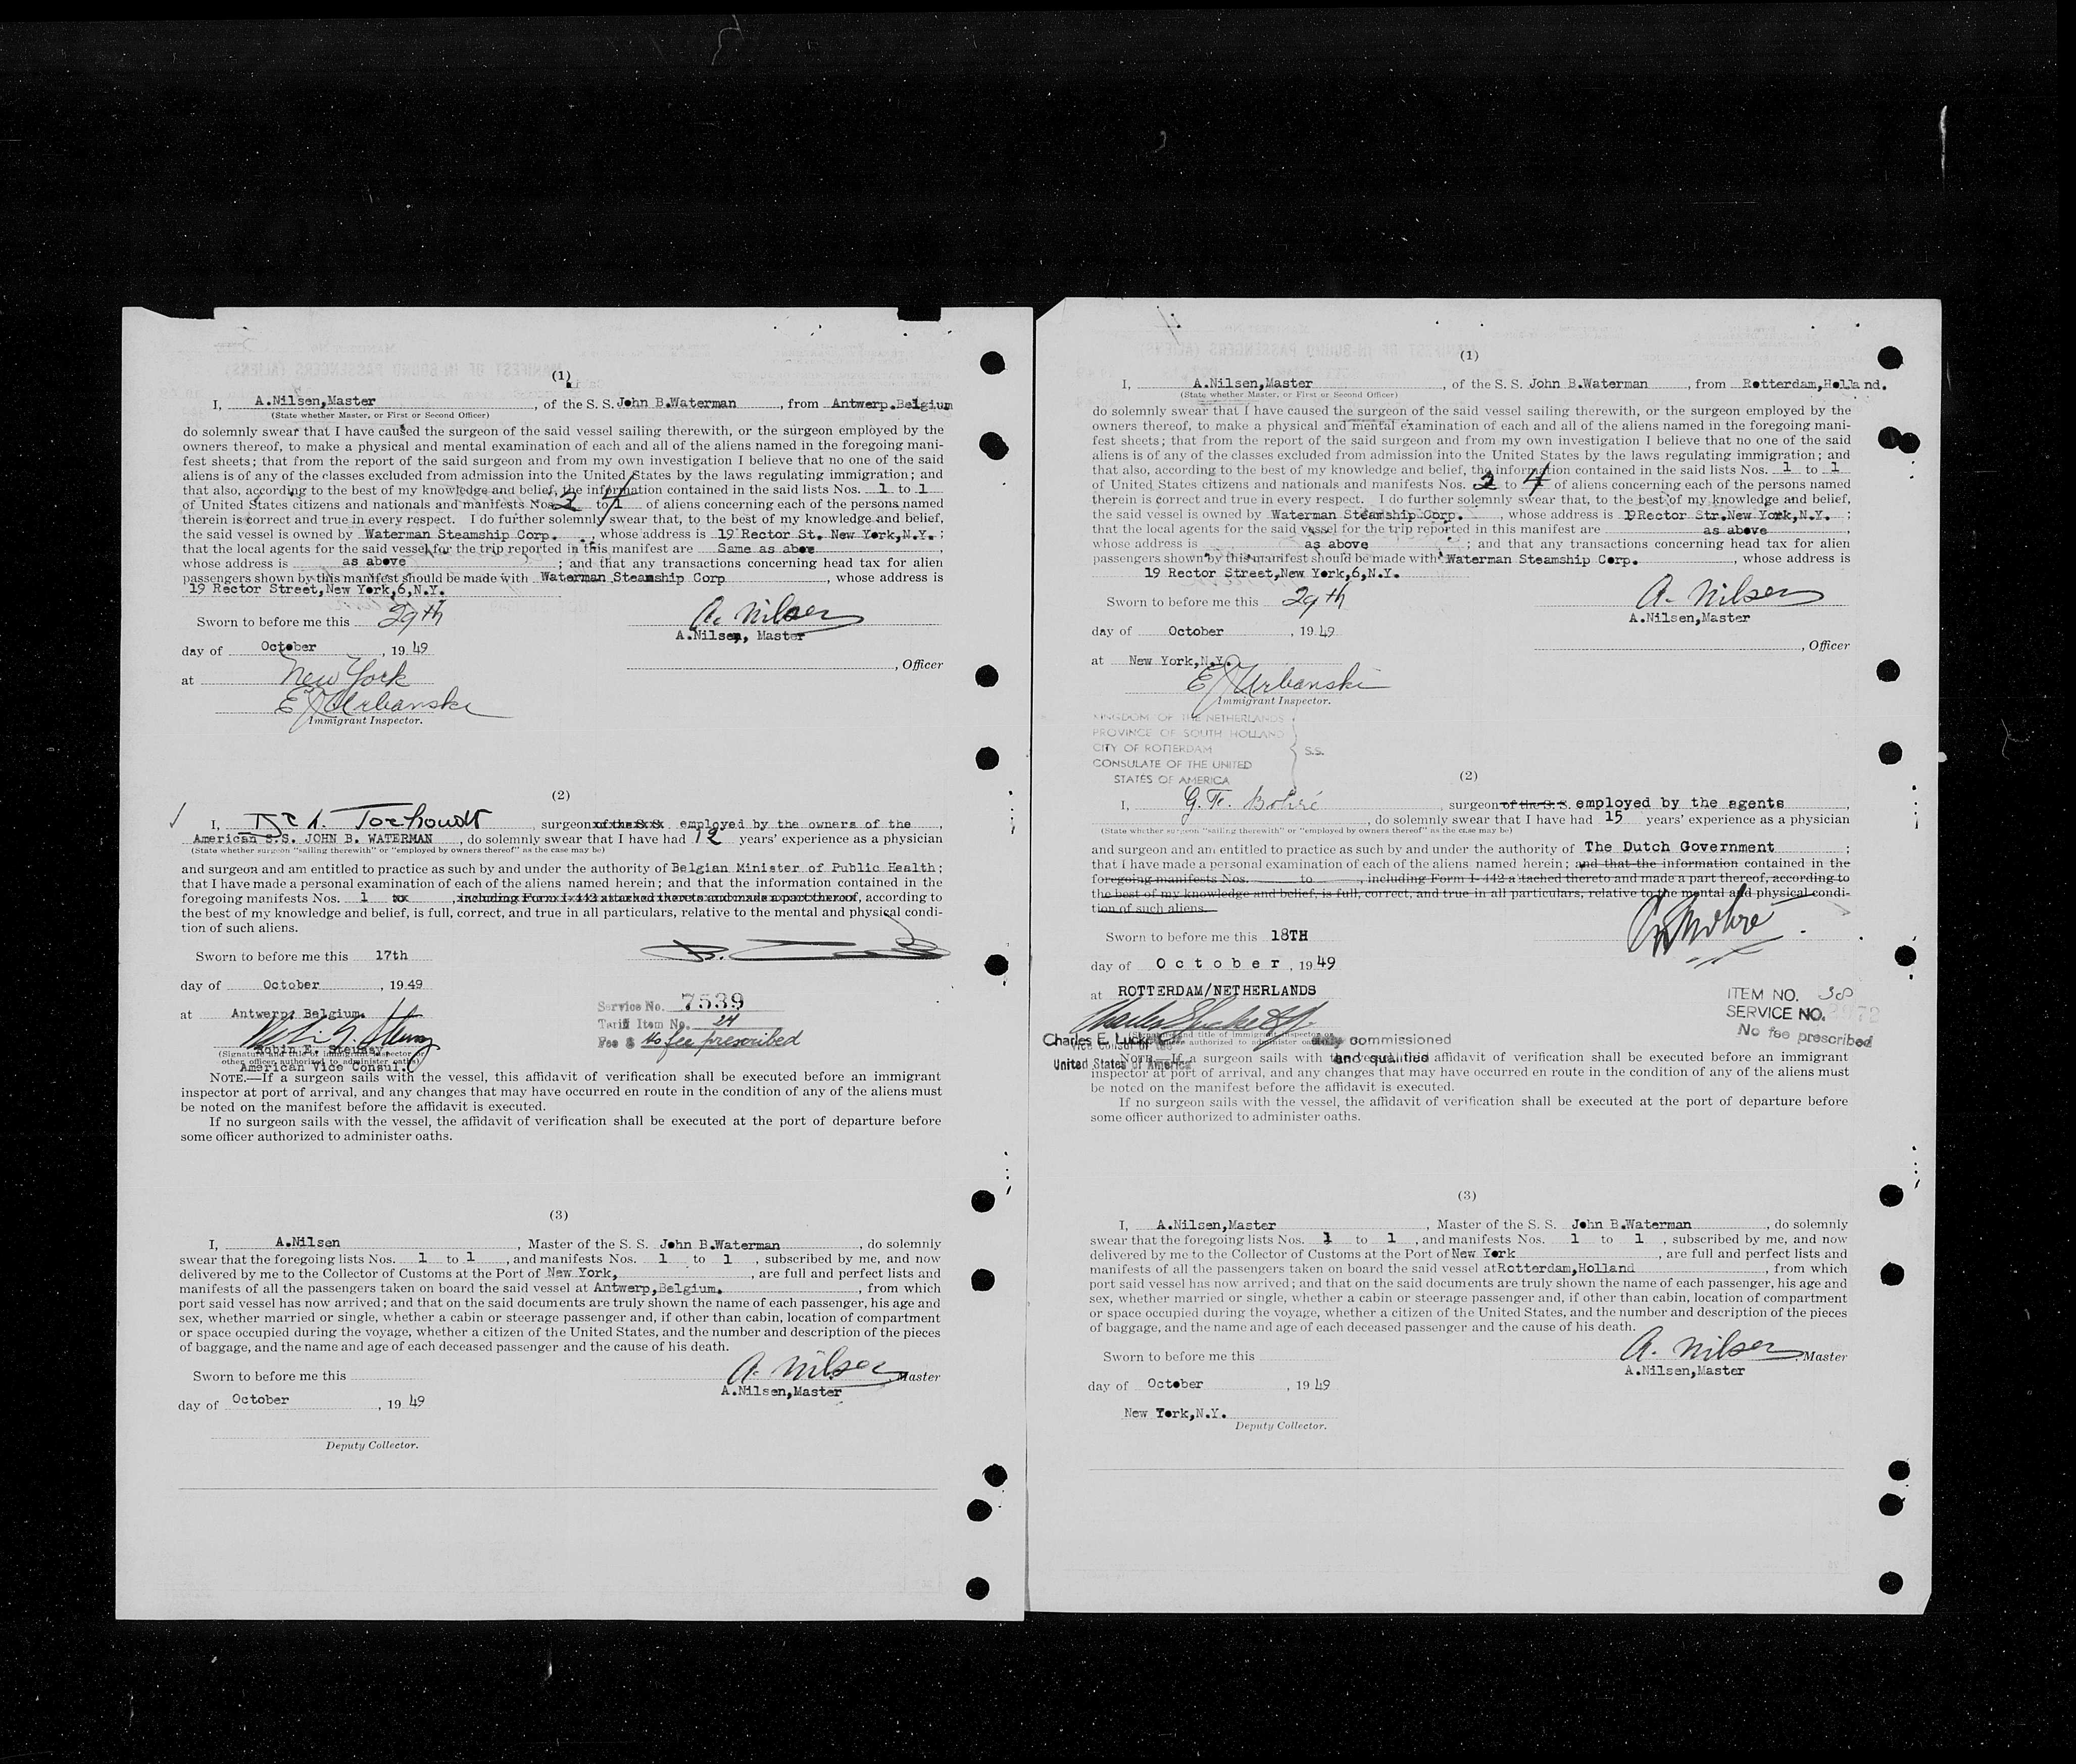 (1)
I, A.Nilsen,Master , of the S. S. John B.Waterman , from Antwerp.Belgium
(State whether Master, or First or Second Officer)
do solemnly swear that I have caused the surgeon of the said vessel sailing therewith, or the surgeon employed by the
owners thereof, to make a physical and mental examination of each and all of the aliens named in the foregoing mani-
fest sheets; that from the report of the said surgeon and from my own investigation I believe that no one of the said
aliens is of any of the classes excluded from admission into the United States by the laws regulating immigration; and
that also, according to the best of my knowledge and belief, the information contained in the said lists Nos. 1 to 1
of United States citizens and nationals and manifests Nos. 2 to 4 of aliens concerning each of the persons named
therein is correct and true in every respect. I do further solemnly swear that, to the best of my knowledge and belief,
the said vessel is owned by Waterman Steamship Corp. , whose address is 19 Rector St. New York,N.Y. ;
that the local agents for the said vessel for the trip reported in this manifest are Same as above ,
whose address is as above ; and that any transactions concerning head tax for alien
passengers shown by this manifest should be made with Waterman Steamship Corp , whose address is
19 Rector Street,New York,6,N.Y.
Sworn to before me this 29th
A. Nilsen
A.Nilsen, Master
day of October , 19 49
, Officer
at New York
E J Urbanski
Immigrant Inspector.
(2)
I, , surgeon of the S. S. employed by the owners of the ,
American S.S. JOHN B. WATERMAN , do solemnly swear that I have had 12 years' experience as a physician
(State whether surgeon "sailing therewith" or "employed by owners thereof" as the case may be)
and surgeon and am entitled to practice as such by and under the authority of Belgian Minister of Public Health;
that I have made a personal examination of each of the aliens named herein; and that the information contained in the
foregoing manifests Nos. 1 xx , including Form I-442 attached thereto and made a part thereof, according to
the best of my knowledge and belief, is full, correct, and true in all particulars, relative to the mental and physical condi-
tion of such aliens.
Sworn to before me this 17th
day of October , 19 49
at Antwerp, Belgium.
Service No. 7539
Tariff Item No. 24
Fee $ No fee prescribed
(Signature and title of immigrant inspector or
other officer authorized to administer oaths)
American Vice Consul.
NOTE.—If a surgeon sails with the vessel, this affidavit of verification shall be executed before an immigrant
inspector at port of arrival, and any changes that may have occurred en route in the condition of any of the aliens must
be noted on the manifest before the affidavit is executed.
If no surgeon sails with the vessel, the affidavit of verification shall be executed at the port of departure before
some officer authorized to administer oaths.
(3)
I, A.Nilsen , Master of the S. S. John B.Waterman , do solemnly
swear that the foregoing lists Nos. 1 to 1 , and manifests Nos. 1 to 1 , subscribed by me, and now
delivered by me to the Collector of Customs at the Port of New York, , are full and perfect lists and
manifests of all the passengers taken on board the said vessel at Antwerp,Belgium. , from which
port said vessel has now arrived; and that on the said documents are truly shown the name of each passenger, his age and
sex, whether married or single, whether a cabin or steerage passenger and, if other than cabin, location of compartment
or space occupied during the voyage, whether a citizen of the United States, and the number and description of the pieces
of baggage, and the name and age of each deceased passenger and the cause of his death.
Sworn to before me this
A. Nilsen , Master
A.Nilsen,Master
day of October , 19 49
Deputy Collector.
(1)
I, A.Nilsen,Master , of the S. S. John B.Waterman , from Rotterdam,Holland.
(State whether Master, or First or Second Officer)
do solemnly swear that I have caused the surgeon of the said vessel sailing therewith, or the surgeon employed by the
owners thereof, to make a physical and mental examination of each and all of the aliens named in the foregoing mani-
fest sheets; that from the report of the said surgeon and from my own investigation I believe that no one of the said
aliens is of any of the classes excluded from admission into the United States by the laws regulating immigration; and
that also, according to the best of my knowledge and belief, the information contained in the said lists Nos. 1 to 1
of United States citizens and nationals and manifests Nos. 2 to 4 of aliens concerning each of the persons named
therein is correct and true in every respect. I do further solemnly swear that, to the best of my knowledge and belief,
the said vessel is owned by Waterman Steamship Corp. , whose address is 19Rector Str.New York,N.Y. ;
that the local agents for the said vessel for the trip reported in this manifest are as above ,
whose address is as above ; and that any transactions concerning head tax for alien
passengers shown by this manifest should be made with Waterman Steamship Corp. , whose address is
19 Rector Street,New York,6,N.Y.
Sworn to before me this 29th
A. Nilsen
A.Nilsen,Master
day of October , 19 49
, Officer
at New York,N.Y.
E J Urbanski
Immigrant Inspector.
KINGDOM OF THE NETHERLANDS
PROVINCE OF SOUTH HOLLAND
CITY OF ROTTERDAM
CONSULATE OF THE UNITED
STATES OF AMERICA
S.S.
(2)
I, , surgeon of the S. S. employed by the agents ,
, do solemnly swear that I have had 15 years' experience as a physician
(State whether surgeon "sailing therewith" or "employed by owners thereof" as the case may be)
and surgeon and am entitled to practice as such by and under the authority of The Dutch Government ;
that I have made a personal examination of each of the aliens named herein; and that the information contained in the
foregoing manifests Nos. to , including Form I-442 attached thereto and made a part thereof, according to
the best of my knowledge and belief, is full, correct, and true in all particulars, relative to the mental and physical condi-
tion of such aliens.
Sworn to before me this 18TH
day of October , 19 49
at ROTTERDAM/NETHERLANDS
ITEM NO. 38
SERVICE NO.
No fee prescribed
Charles E. Lucket
(Signature and title of immigrant inspector or
other officer authorized to administer oaths)
Vice Consul of the
United States of America
duly commissioned
and qualified
NOTE.—If a surgeon sails with the vessel, this affidavit of verification shall be executed before an immigrant
inspector at port of arrival, and any changes that may have occurred en route in the condition of any of the aliens must
be noted on the manifest before the affidavit is executed.
If no surgeon sails with the vessel, the affidavit of verification shall be executed at the port of departure before
some officer authorized to administer oaths.
(3)
I, A.Nilsen,Master , Master of the S. S. John B.Waterman , do solemnly
swear that the foregoing lists Nos. 1 to 1 , and manifests Nos. 1 to 1 , subscribed by me, and now
delivered by me to the Collector of Customs at the Port of New York , are full and perfect lists and
manifests of all the passengers taken on board the said vessel at Rotterdam,Holland , from which
port said vessel has now arrived; and that on the said documents are truly shown the name of each passenger, his age and
sex, whether married or single, whether a cabin or steerage passenger and, if other than cabin, location of compartment
or space occupied during the voyage, whether a citizen of the United States, and the number and description of the pieces
of baggage, and the name and age of each deceased passenger and the cause of his death.
Sworn to before me this
A. Nilsen , Master
A.Nilsen,Master
day of October , 19 49
New York,N.Y.
Deputy Collector.